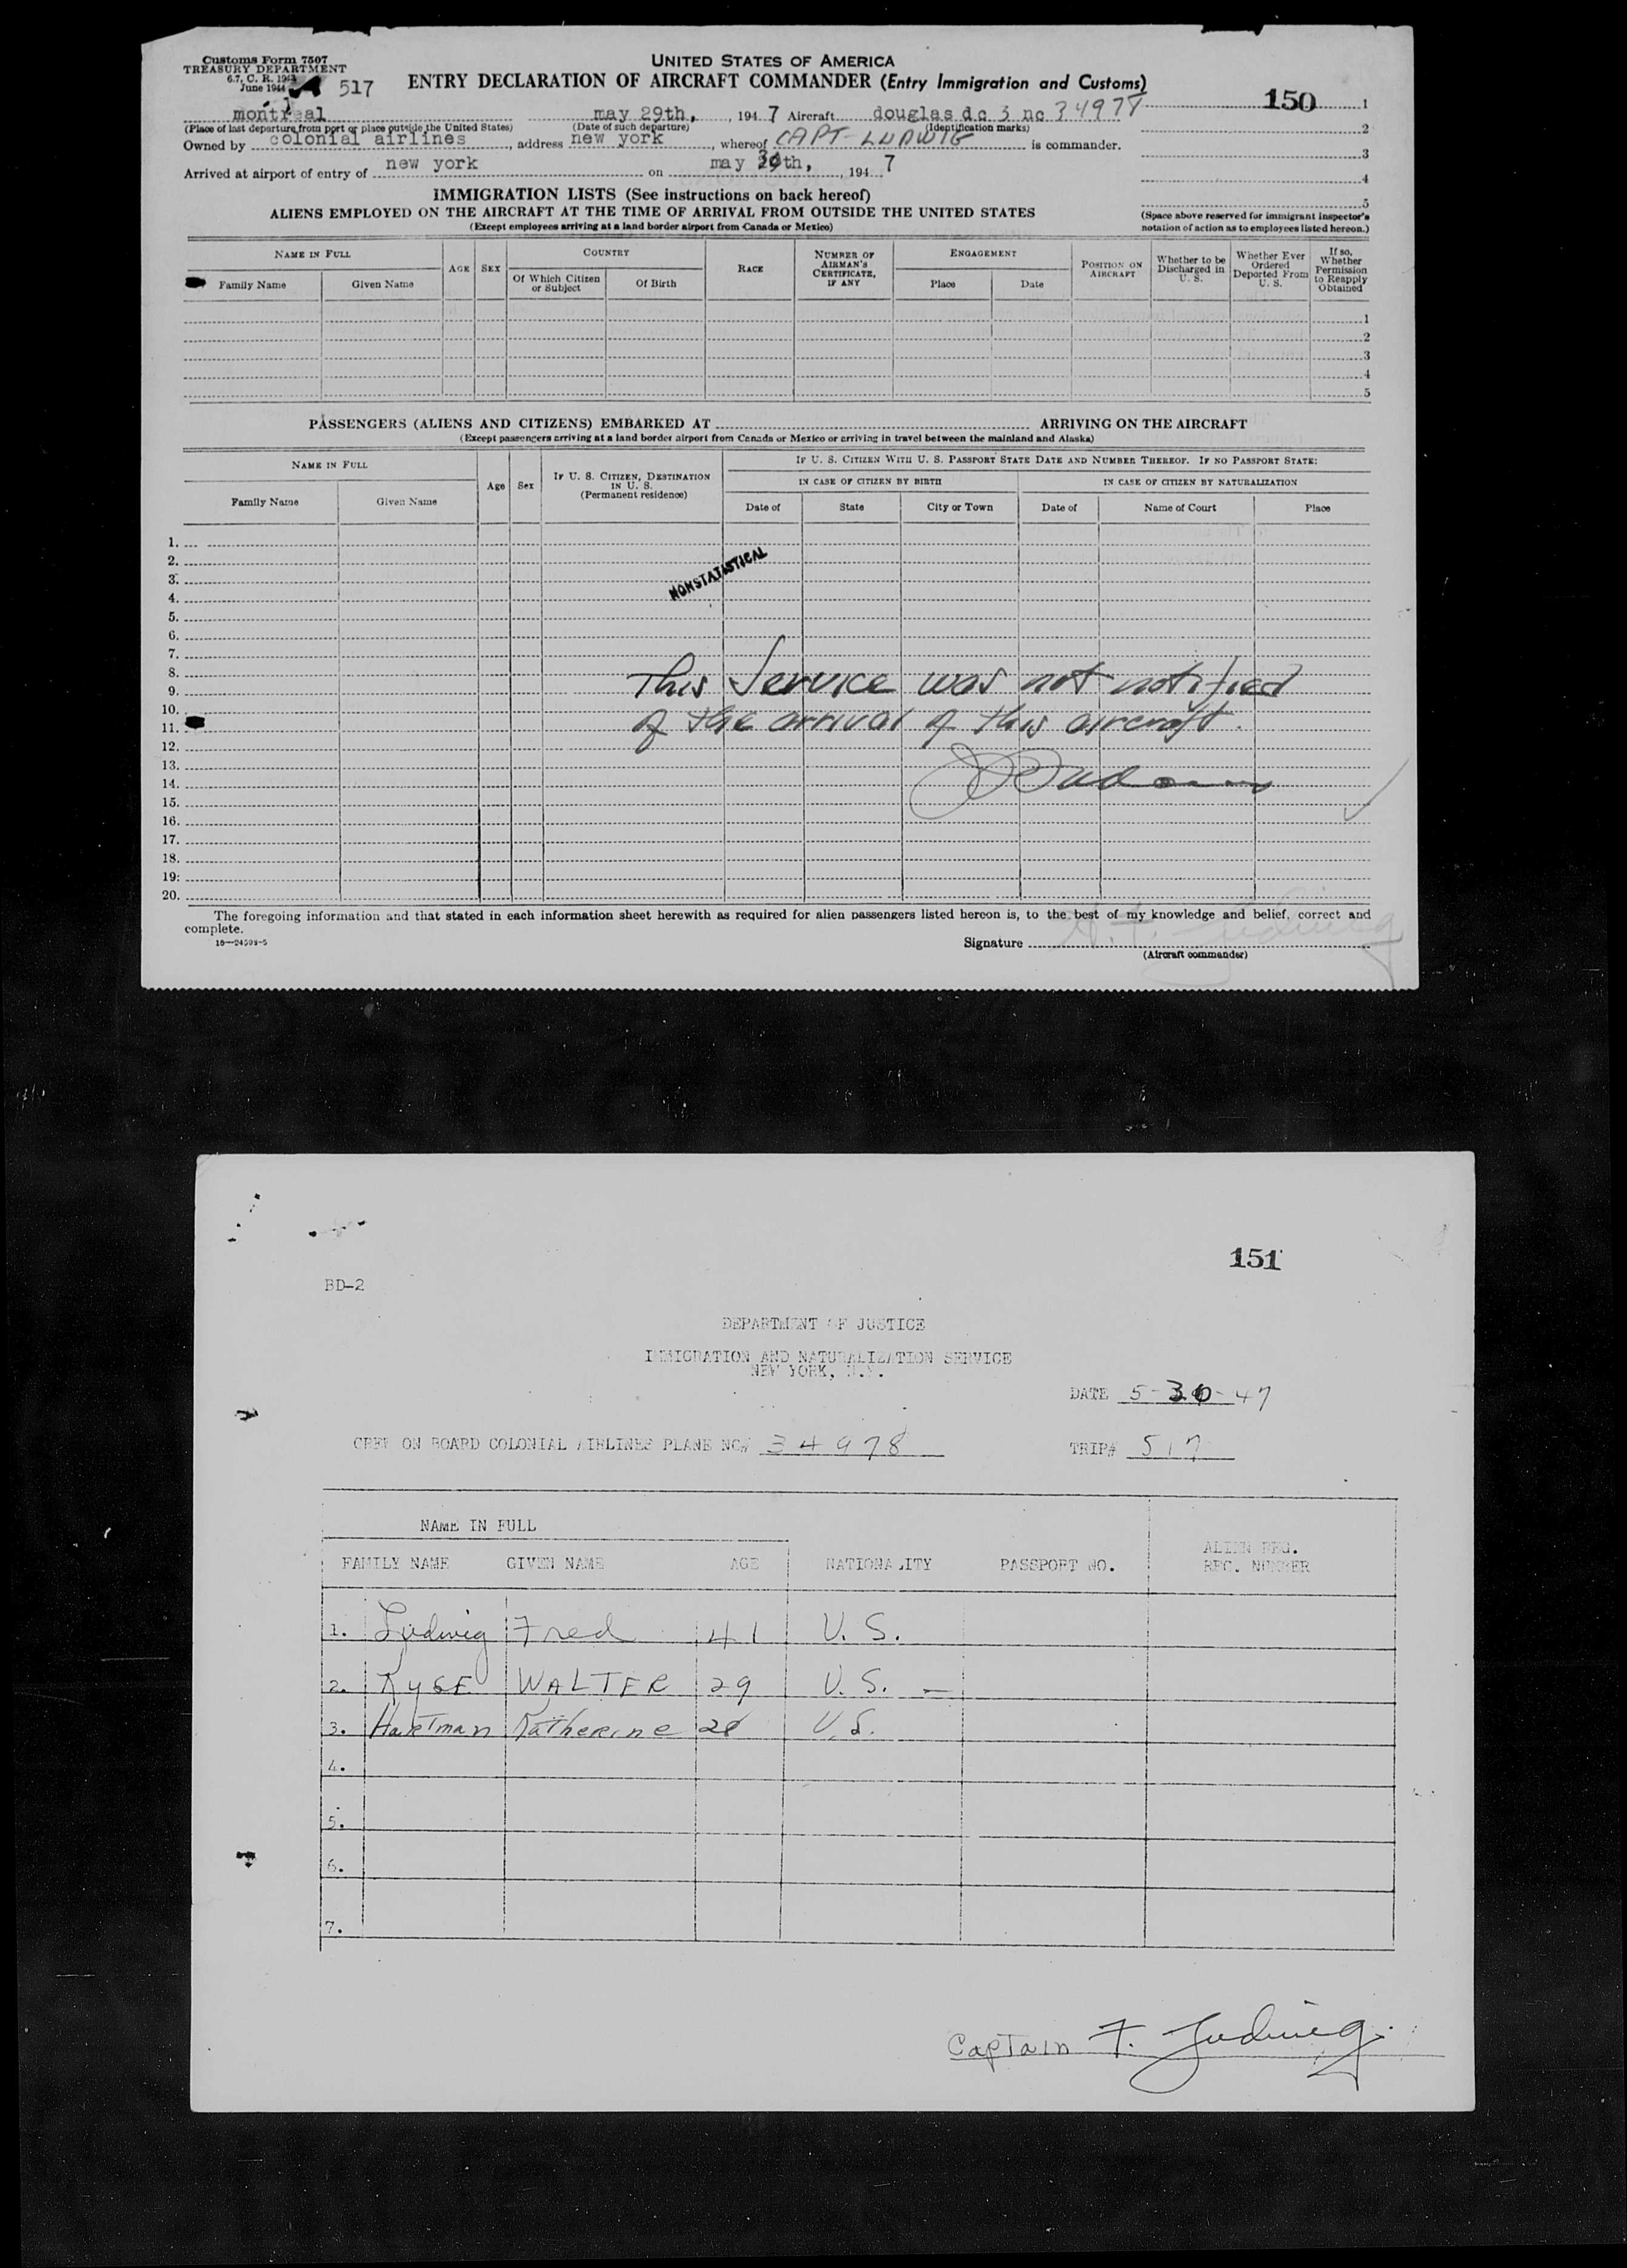 Customs Form 7507
TREASURY DEPARTMENT
6.7, C. R. 1943
June 1944
517
UNITED STATES OF AMERICA
ENTRY DECLARATION OF AIRCRAFT COMMANDER (Entry Immigration and Customs)
150 1
montreal may 29th, 1947 Aircraft douglas dc 3 nc 34978
(Place of last departure from port or place outside the United States) (Date of such departure) (Identification marks) 2
Owned by colonial airlines, address new york, whereof CAPT- LUDWIG is commander.
3
Arrived at airport of entry of new york on may 30th, 1947
4
5
IMMIGRATION LISTS (See instructions on back hereof)
ALIENS EMPLOYED ON THE AIRCRAFT AT THE TIME OF ARRIVAL FROM OUTSIDE THE UNITED STATES
(Except employees arriving at a land border airport from Canada or Mexico)
(Space above reserved for immigrant inspector's
notation of action as to employees listed hereon.)
NAME IN FULL
Family Name Given Name
AGE SEX
COUNTRY
Of Which Citizen or Subject Of Birth
RACE
NUMBER OF AIRMAN'S CERTIFICATE, IF ANY
ENGAGEMENT
Place Date
POSITION ON AIRCRAFT
Whether to be Discharged in U. S.
Whether Ever Ordered Deported From U. S.
If so, Whether Permission to Reapply Obtained
1
2
3
4
5
PASSENGERS (ALIENS AND CITIZENS) EMBARKED AT ARRIVING ON THE AIRCRAFT
(Except passengers arriving at a land border airport from Canada or Mexico or arriving in travel between the mainland and Alaska)
NAME IN FULL
Family Name Given Name
Age Sex
IF U. S. CITIZEN, DESTINATION IN U. S.
(Permanent residence)
IF U. S. CITIZEN WITH U. S. PASSPORT STATE DATE AND NUMBER THEREOF. IF NO PASSPORT STATE:
IN CASE OF CITIZEN BY BIRTH IN CASE OF CITIZEN BY NATURALIZATION
Date of State City or Town Date of Name of Court Place
1.
2.
NONSTATISTICAL
3.
4.
5.
6.
7.
8.
This Service was not notified
9.
10.
of the arrival of this aircraft.
11.
12.
13.
14.
15.
16.
17.
18.
19.
20.
The foregoing information and that stated in each information sheet herewith as required for alien passengers listed hereon is, to the best of my knowledge and belief, correct and
complete.
Signature
(Aircraft commander)
151
BD-2
DEPARTMENT OF JUSTICE
IMMIGRATION AND NATURALIZATION SERVICE
NEW YORK, N.Y.
DATE 5-30-47
CREW ON BOARD COLONIAL AIRLINES PLANE NC# 34978 TRIP# 517
NAME IN FULL
FAMILY NAME GIVEN NAME AGE NATIONALITY PASSPORT NO. ALIEN REG. REC. NUMBER
1. Ludwig Fred 41 U. S.
2. Kyse WALTER 29 U. S. —
3. Hartman Katherine 28 U.S.
4.
5.
6.
7.
Captain F. Ludwig